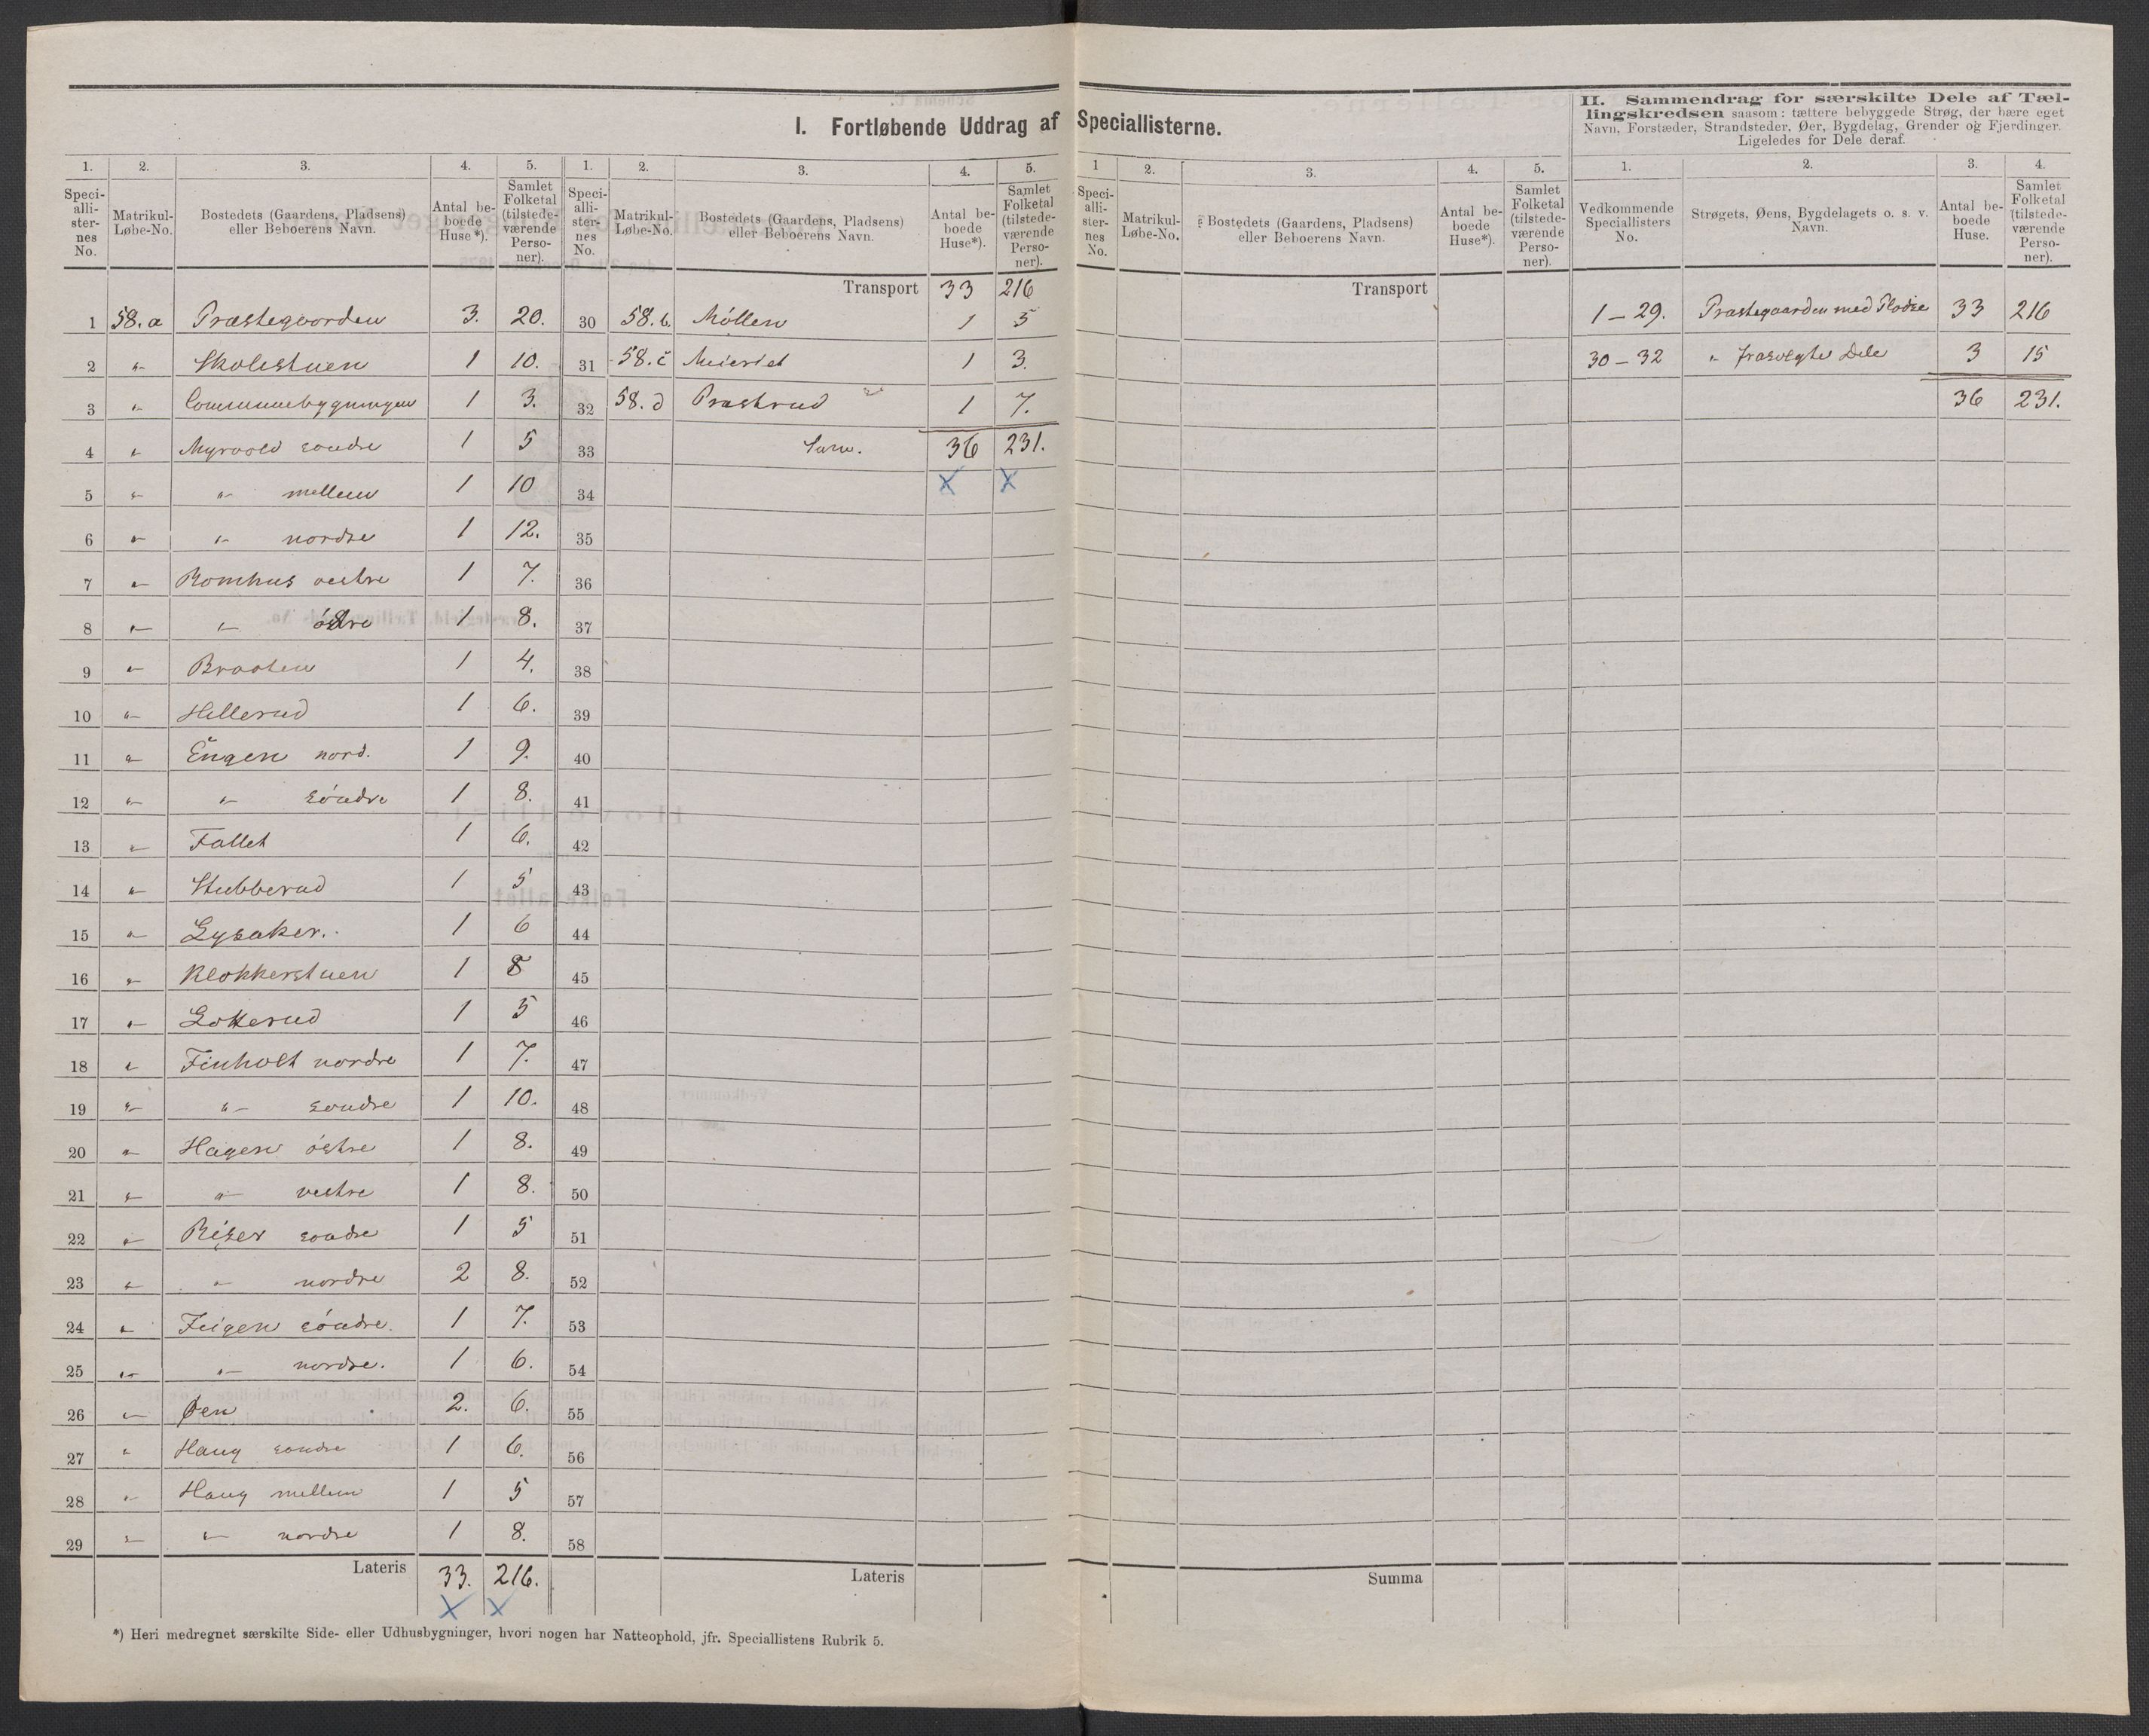 I. Fortløbende Uddrag af Speciallisterne.
II. Sammendrag for særskilte Dele af Tæl-
lingskredsen saasom: tættere bebyggede Strøg, der bære eget
Navn, Forstæder, Strandsteder, Øer, Bygdelag, Grender og Fjerdinger.
Ligeledes for Dele deraf.
1. 2. 3. 4. 5. 1. 2. 3. 4. 5. 1 2. 3. 4. 5. 1. 2. 3. 4.
Speci-alli-ster-nes No. Matrikul-Løbe-No. Bostedets (Gaardens, Pladsens) eller Beboerens Navn. Antal be-boede Huse*). Samlet Folketal (tilstede-værende Perso-ner).
Speci-alli-ster-nes No. Matrikul-Løbe-No. Bostedets (Gaardens, Pladsens) eller Beboerens Navn. Antal be-boede Huse*). Samlet Folketal (tilstede-værende Perso-ner).
Speci-alli-ster-nes No. Matrikul-Løbe-No. Bostedets (Gaardens, Pladsens) eller Beboerens Navn. Antal be-boede Huse*). Samlet Folketal (tilstede-værende Perso-ner).
Vedkommende Speciallisters No. Strøgets, Øens, Bygdelagets o. s. v. Navn. Antal be-boede Huse. Samlet Folketal (tilstede-værende Perso-ner).
1 58.a Præstegaarden 3. 20.
2 " Skolestuen 1 10.
3 " Communebygningen 1 3.
4 " Myrvold søndre 1 5
5 " " mellem 1 10
6 " " nordre 1 12.
7 " Romhus vestre 1 7.
8 " " østre 1 8.
9 " Braaten 1 4.
10 " Hillerud 1 6.
11 " Engen nord. 1 9.
12 " " søndre 1 8.
13 " Fallet 1 6.
14 " Stubberud 1 5
15 " Lysaker. 1 6
16 " Klokkerstuen 1 8
17 " Lokkerud 1 5
18 " Finholt nordre 1 7.
19 " " søndre 1 10.
20 " Hagen østre 1 8.
21 " " vestre 1 8.
22 " Riser søndre 1 5
23 " " nordre 2 8.
24 " Feigen søndre. 1 7.
25 " " nordre. 1 6.
26 " Øen 2. 6.
27 " Haug søndre 1 6.
28 " Haug mellem 1 5
29 " " nordre 1 8.
Lateris 33. 216.
X X
Transport 33 216
30 58.b. Møllen 1 5
31 58.c Meieriet 1 3.
32 58.d Præstrud 1 7.
33 Sum. 36 231.
34 X X
35
36
37
38
39
40
41
42
43
44
45
46
47
48
49
50
51
52
53
54
55
56
57
58
Lateris
Transport
Summa
1 – 29. Præstegaarden med Pladse 33 216
30 – 32 " frasolgte Dele 3 15
36 231.
*) Heri medregnet særskilte Side- eller Udhusbygninger, hvori nogen har Natteophold, jfr. Speciallistens Rubrik 5.